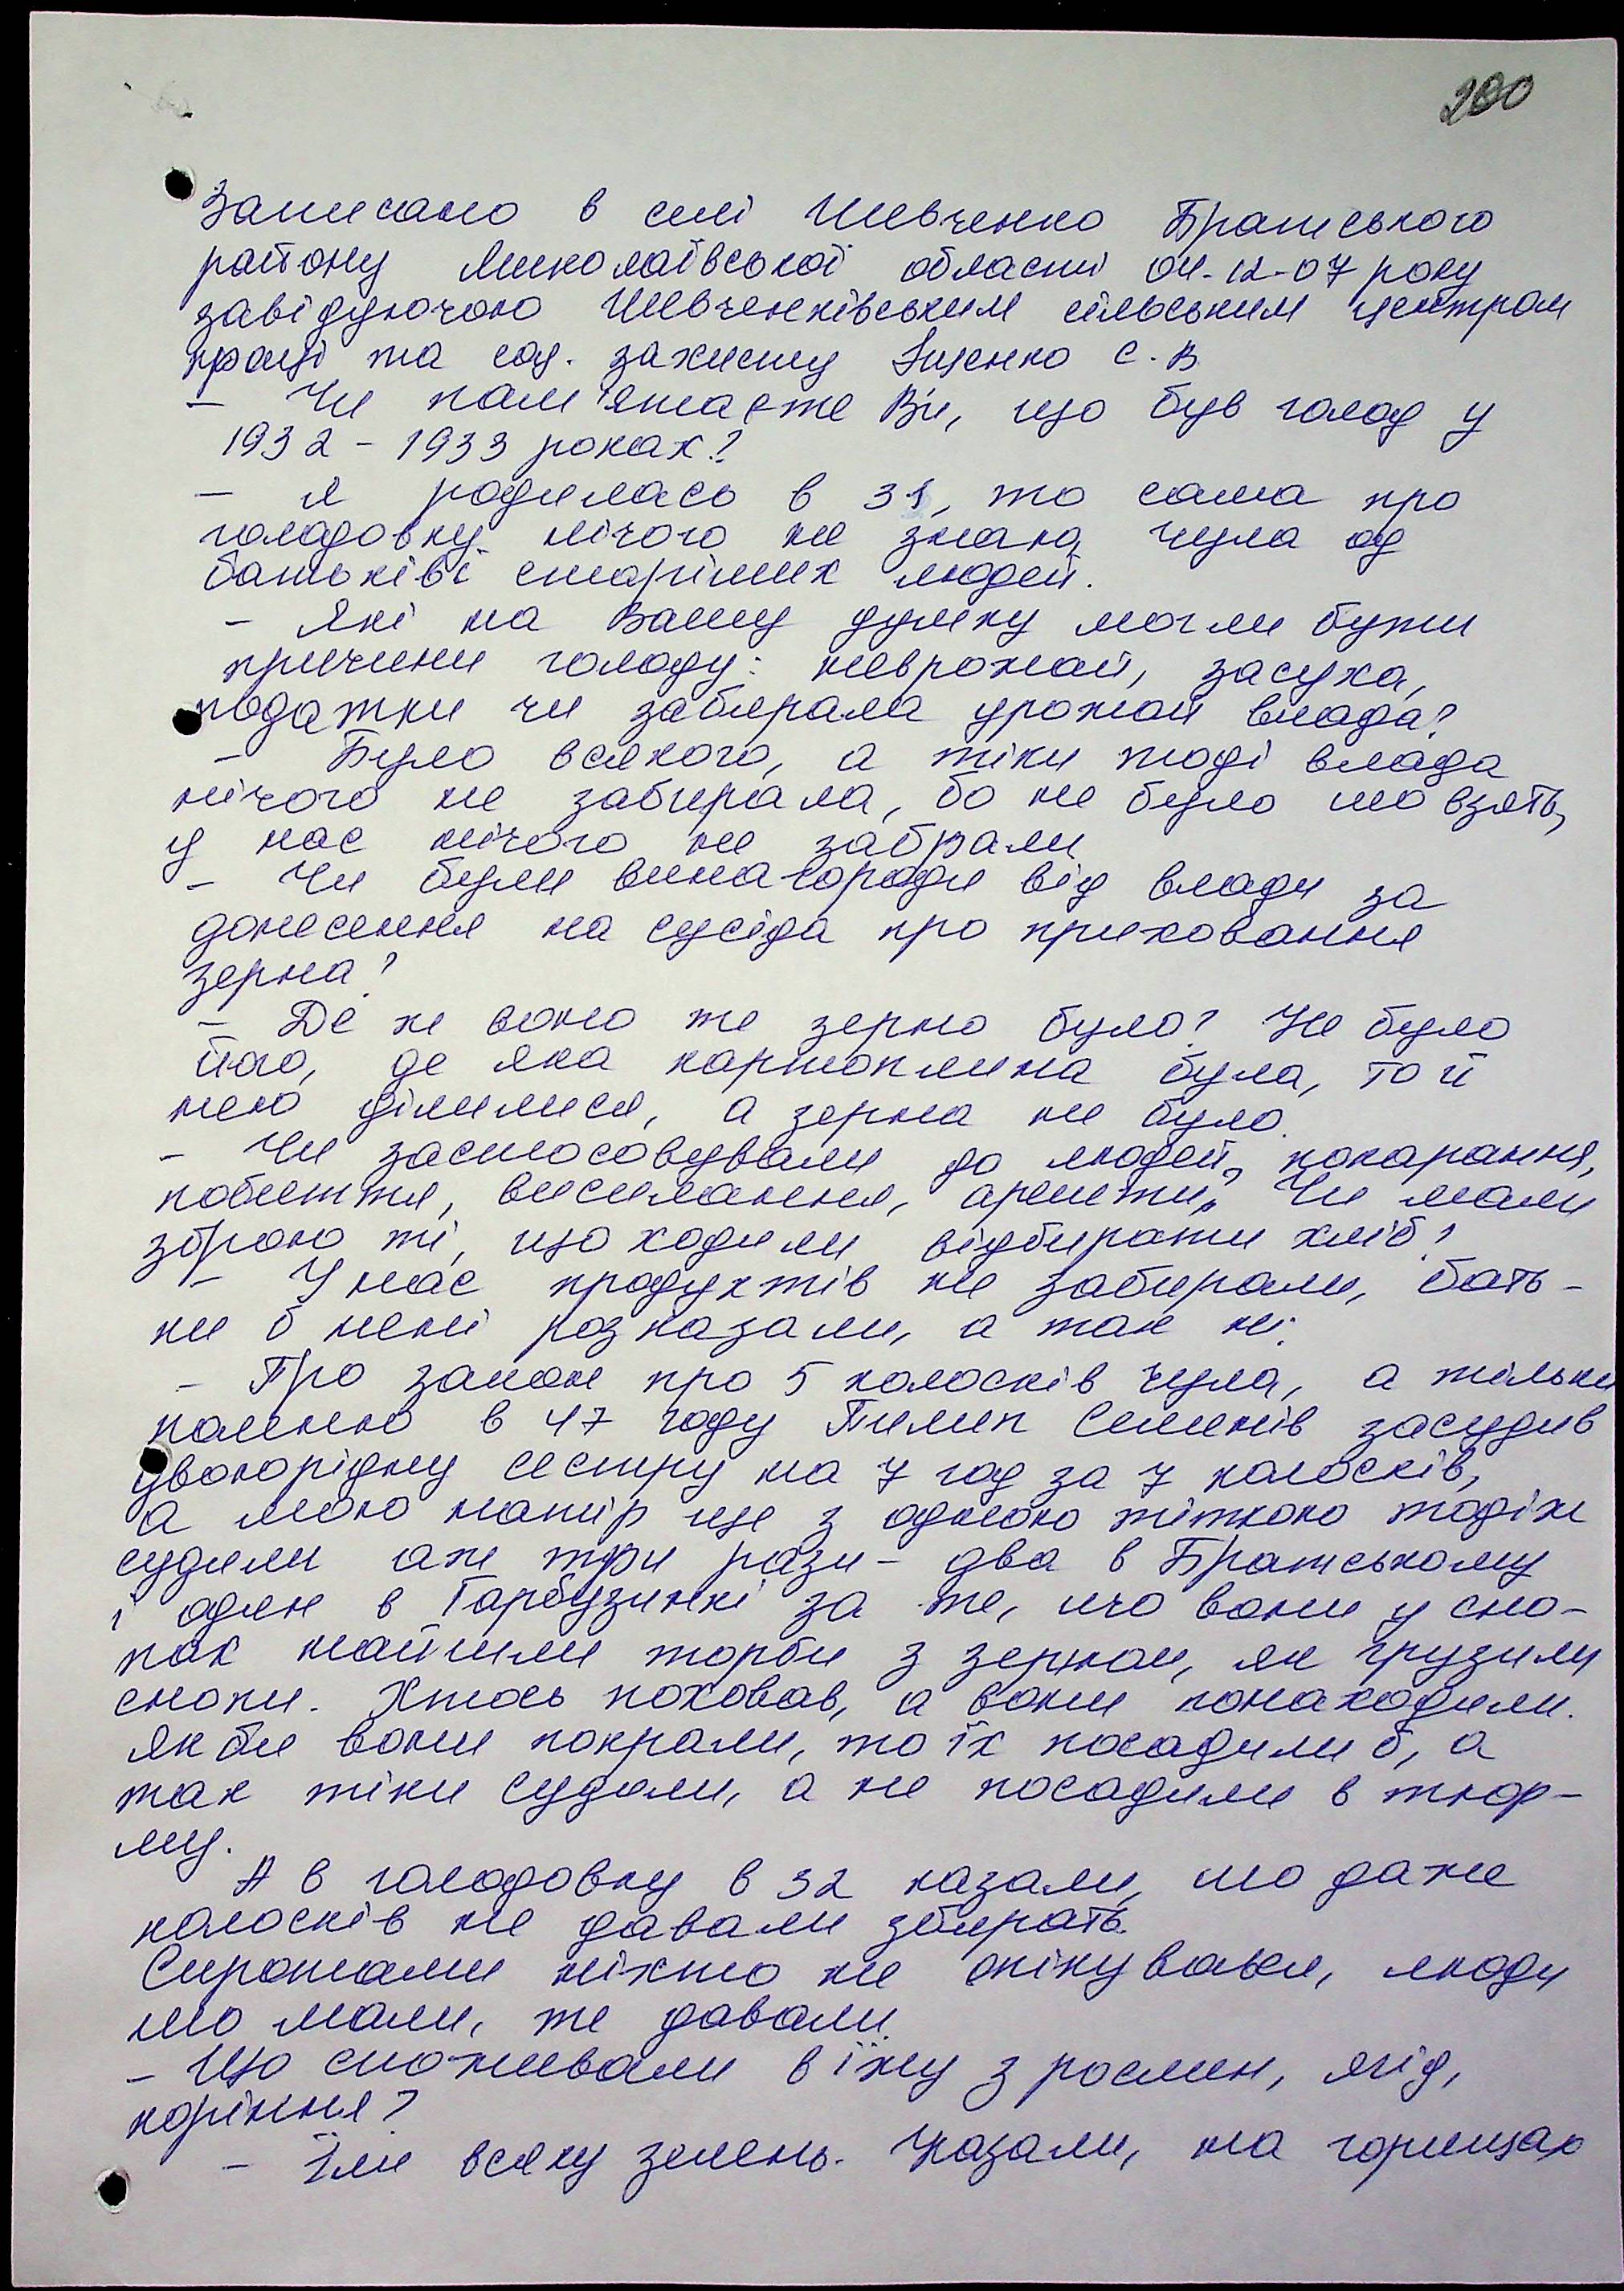 200
Записано в селі Шевченко Братського
району Миколаївської області 04-12-07 року
завідуючою Шевченківським сільським центром
праці та соц. захисту Іщенко С. В
- Чи пам'ятаєте Ви, що був голод у
1932 - 1933 роках?
- Я родилась в 31, то сама про
голодовку нічого не знаю, чула од
батьків і старіших людей.
- Які на Вашу думку могли бути
причини голоду: неврожай, засуха,
податки чи забирала урожай влада?
- Було всякого, а тіки тоді влада
нічого не забирала, бо не було шо взять,
у нас нічого не забрали
- Чи були винагороди від влади за
донесення на сусіда про приховання
зерна?
- Де ж воно те зерно було? Не було
його, де яка картоплина була, то й
нею ділилися, а зерна не було.
- Чи застосовували до людей покарання,
побиття, висилання, арешти? Чи мали
зброю ті, що ходили відбирати хліб?
- У нас продуктів не забирали, бать-
ки б мені розказали, а так ні.
- Про закон про 5 колосків чула, а тільки
помню в 47 году Пилип Семенів засудив
двоюрідну сестру на 7 год за 7 колосків,
а мою матір ще з одною тіткою тодіж
судили аж три рази - два в Братському
і один в Гарбузинкі за те, шо вони у сно-
пах найшли торби з зерном, як грузили
снопи. Хтось поховав, а вони понаходили.
Якби вони покрали, то їх посадили б, а
так тіки судили, а не посадили в тюр-
му.
А в голодовку в 32 казали, шо даже
колосків не давали збирать.
Сиротами ніхто не опікувався, люди
шо мали, те давали.
- Що споживали в їжу з рослин, ягід,
коріння?
- Їли всяку зелень. Казали, на горищах